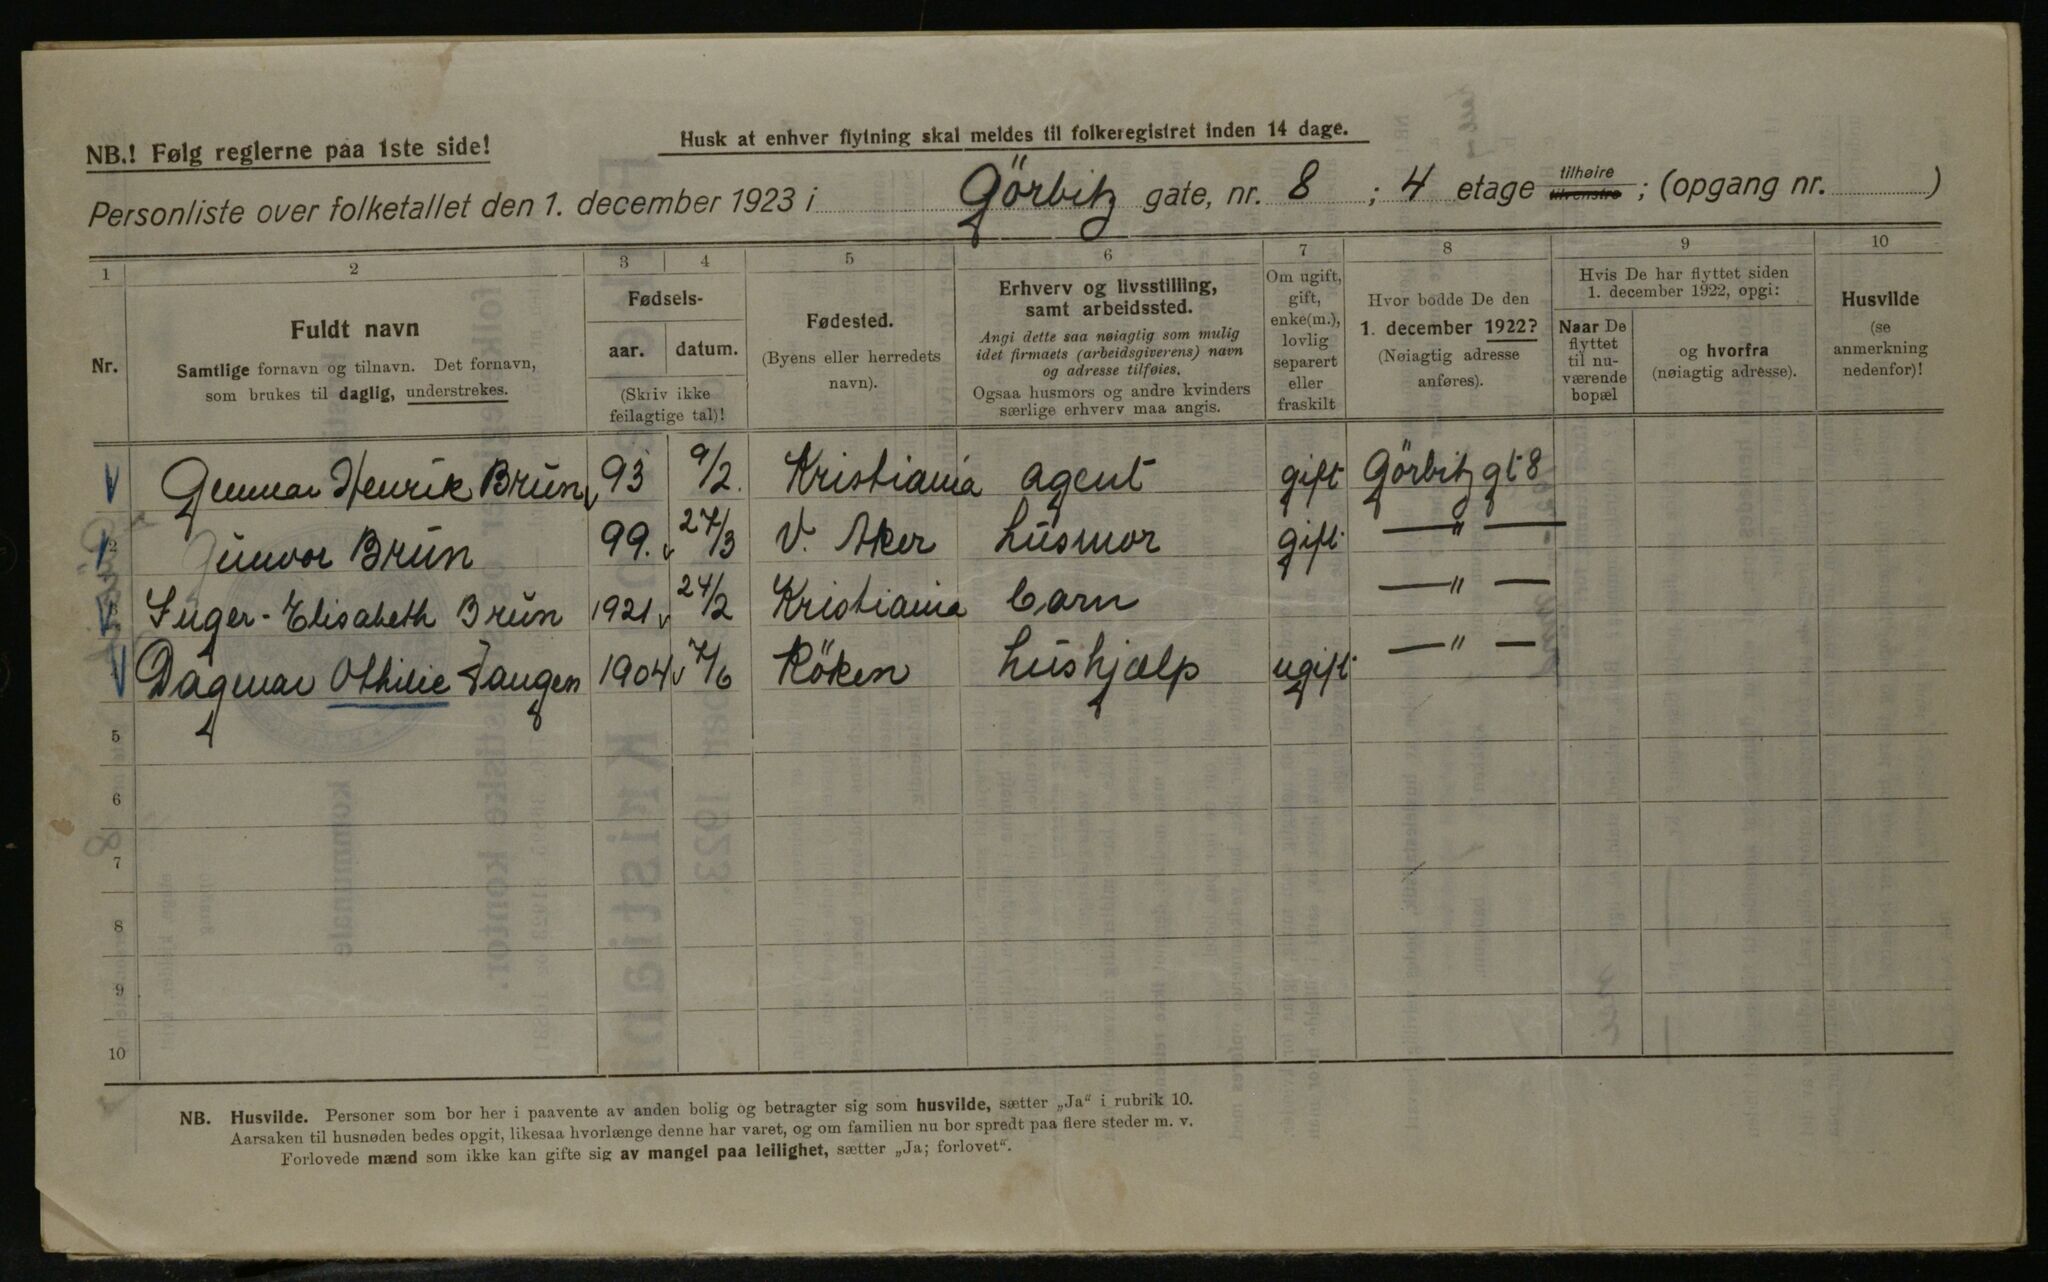 NB.! Følg reglerne paa 1ste side!
Husk at enhver flytning skal meldes til folkeregistret inden 14 dage.
Personliste over folketallet den 1. december 1923 i Görbitz gate, nr. 8 ; 4 etage tilhøire tilvenstre ; (opgang nr. )
1 2 3 4 5 6 7 8 9 10
Nr.
Fuldt navn
Samtlige fornavn og tilnavn. Det fornavn,
som brukes til daglig, understrekes.
Fødsels-
aar. datum.
(Skriv ikke
feilagtige tal)!
Fødested.
(Byens eller herredets
navn).
Erhverv og livsstilling,
samt arbeidssted.
Angi dette saa nøiagtig som mulig
idet firmaets (arbeidsgiverens) navn
og adresse tilføies.
Ogsaa husmors og andre kvinders
særlige erhverv maa angis.
Om ugift,
gift,
enke(m.),
lovlig
separert
eller
fraskilt
Hvor bodde De den
1. december 1922?
(Nøiagtig adresse
anføres).
Hvis De har flyttet siden
1. december 1922, opgi:
Naar De
flyttet
til nu-
værende
bopæl
og hvorfra
(nøiagtig adresse).
Husvilde
(se
anmerkning
nedenfor)!
Gunnar Henrik Brun 93 9/2. Kristiania agent gift Görbitz gt 8
2 Gunvor Brun 99. 27/3 V. Aker husmor gift — " —
Inger-Elisabeth Brun 1921 24/2 Kristiania barn — " —
Dagmar Othilie Tangen 1904 7/6 Röken hushjælp ugift — " —
5
6
7
8
9
10
NB. Husvilde. Personer som bor her i paavente av anden bolig og betragter sig som husvilde, sætter „Ja“ i rubrik 10.
Aarsaken til husnøden bedes opgit, likesaa hvorlænge denne har varet, og om familien nu bor spredt paa flere steder m. v.
Forlovede mænd som ikke kan gifte sig av mangel paa leilighet, sætter „Ja; forlovet“.